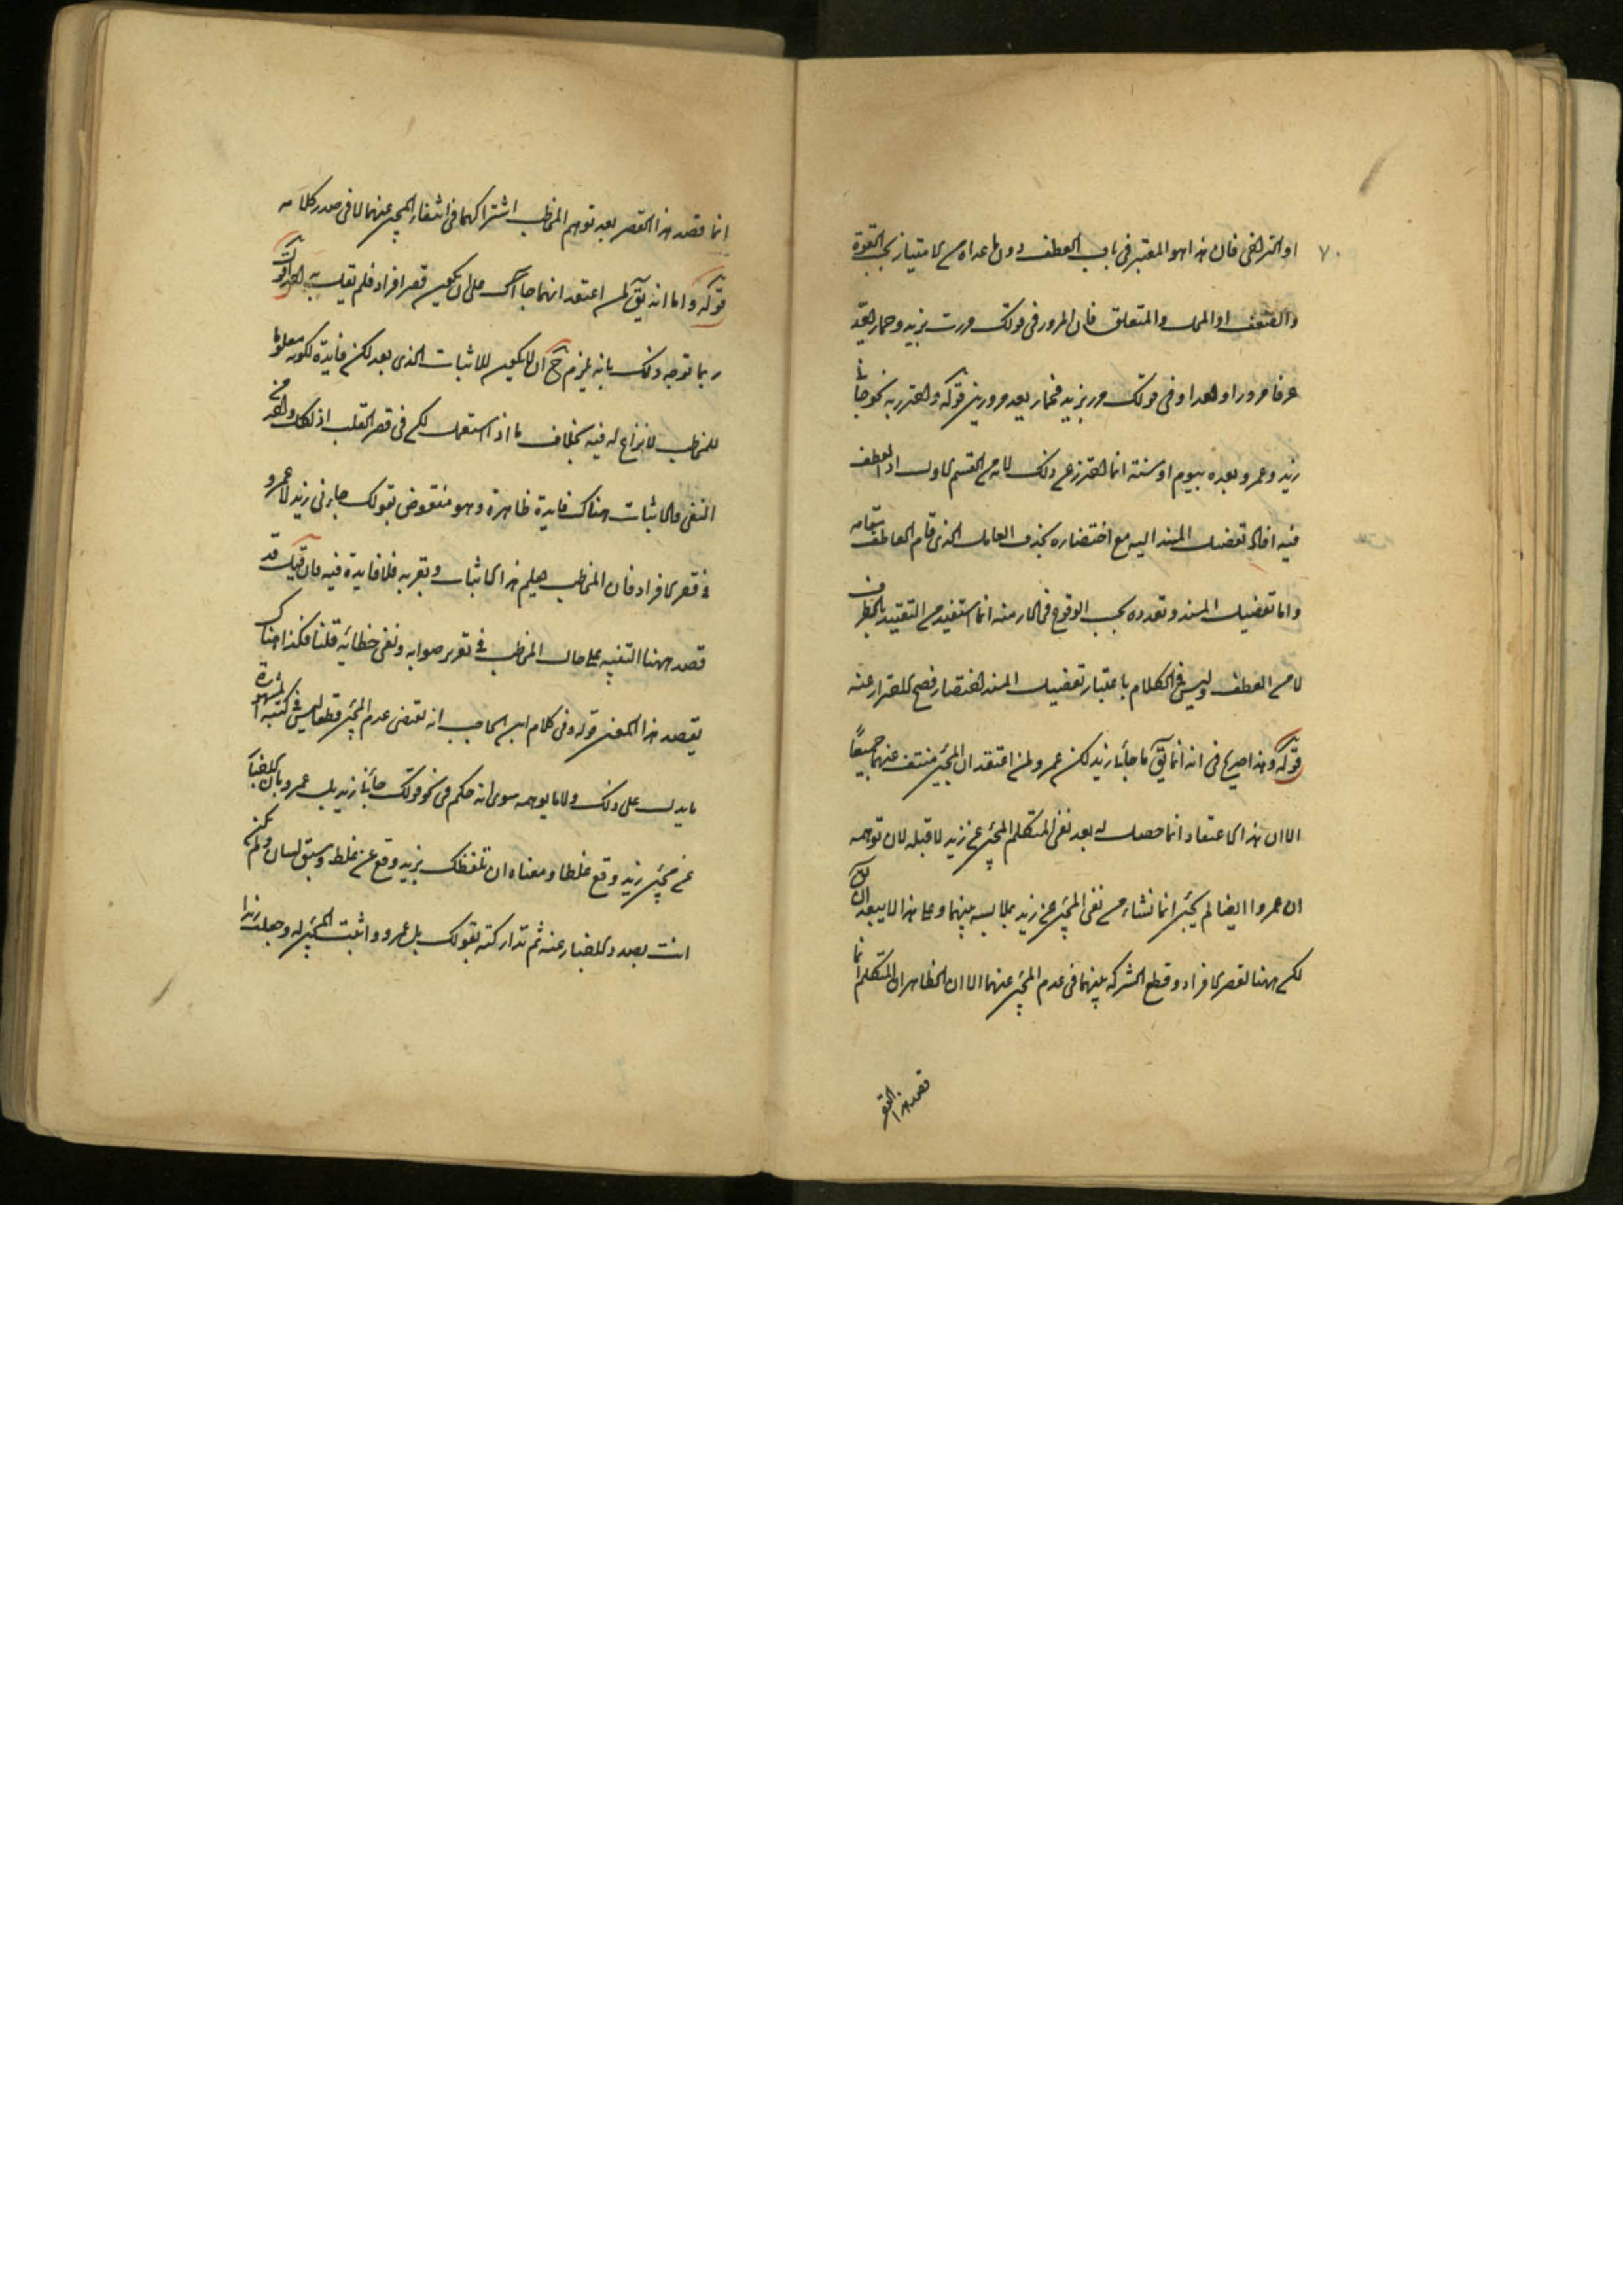 ٧٠
او التراخى فان هذا هو المعتبر فى باب العطف دون ما عداه من الامتياز بحسب القوة
والضعف او المحل والمتعلق فان المرور فى قولك مررت بزيد وحمار يعد
عرفا مرورا واحدا وفى قولك مر بزيد فحمار يعد مرورين قوله واحترز به نحو جائنى
زيد وعمرو بعده بيوم او سنة انما احترز عن ذلك لانه من القسم الاول اذ العطف
فيه افاد تفصيل المسند اليه مع اختصاره بحذف العامل الذى قام العاطف مقامه
واما تفصيل المسند وتعدده بحسب الوقوع فى الازمنه انما استفيد من التقييد بالظرف
لا من العطف وليس فى الكلام باعتبار تفصيل المسند اختصار فصح الاحتراز عنه
قوله وهذا صريح فى انه انما يق ما جائنا زيد لكن عمرو لمن اعتقد ان المجئ منتف عنهما جميعا
الا ان هذا الاعتقاد انما حصل له بعد نفى المتكلم المجئ عن زيد لا قبله لان توهمه
ان عمروا ايضا لم يجئ انما نشاء من نفى المجئ عن زيد بملابسة بينهما وعلى هذا لا يبعد ان يق
لكن ههنا لقصر الافراد وقطع الشركة بينهما فى عدم المجئ عنهما الا ان الظاهر ان المتكلم انما
قصد هذا القصر
انما قصد هذا القصر بعد توهم المخاطب اشتراكهما فى انتفاء المجئ عنهما لا فى صدر كلامه
قوله واما انه يق لمن اعتقد انهما جاآك على ان يكون قصر افراد فلم يقل به احد اقول
ربما توجه ذلك بانه يلزم ح ان لا يكون للاثبات الذى بعد لكن فايدة لكونه معلوما
للمخاطب لا نزاع له فيه بخلاف ما اذا استعمل لكن فى قصر القلب اذ لكل واحد من
النفى والاثبات هناك فايدة ظاهرة وهو منقوض بقولك جاءنى زيد لا عمرو
فى قصر الافراد فان المخاطب يعلم هذا الاثبات ويقر به فلا فايدة فيه فان قيل قد
قصد ههنا التنبيه على حال المخاطب فى تقرير صوابه ونفى خطائه قلنا فكذا هناك
يقصد هذا المعنى قوله وفى كلام ابن الحاجب انه يقتضى عدم المجئ قطعا ليس فى كتبه المشهورة
ما يدل على ذلك ولا ما يوهمه سوى انه حكم فى نحو قولك جائنا زيد بل عمرو بان الاخبار
عن مجئ زيد وقع غلطا ومعناه ان تلفظك بزيد وقع عن غلط وسبق لسان ولم تكن
انت بصدد الاخبار عنه ثم تداركته بقولك بل عمرو واثبت المجئ له وجعلت زيدا